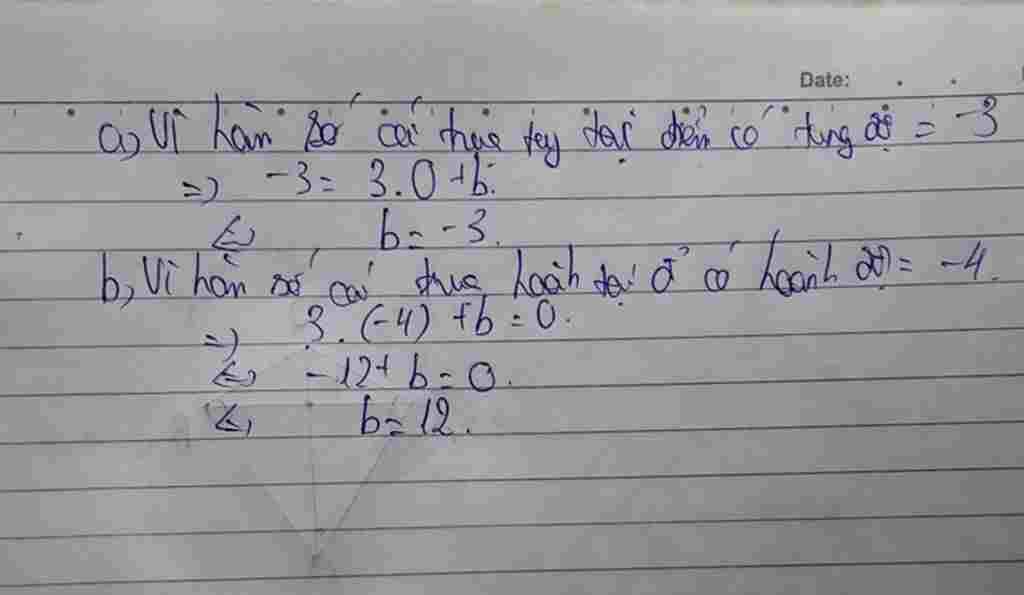 Date:
a, Vì hàn số cắt trục tug tại điểm có tung độ = -3
=> -3 = 3.0 + b.
<=> b = -3.
b, Vì hàn số cắt trục hoành tại đ' có hoành độ = -4.
=> 3.(-4) + b = 0.
<=> -12 + b = 0.
<=> b = 12.